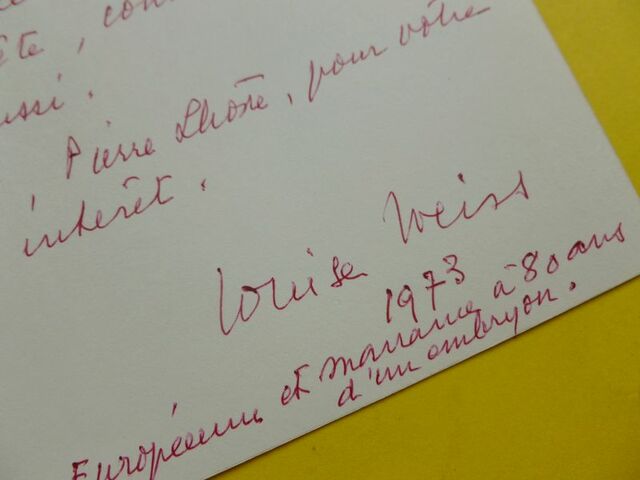 ête, con
ussi.
, Pierre Lhoste, pour votre
intérêt.
Louise Weiss
1973
Européenne et marraine à 80 ans
d'un embryon.